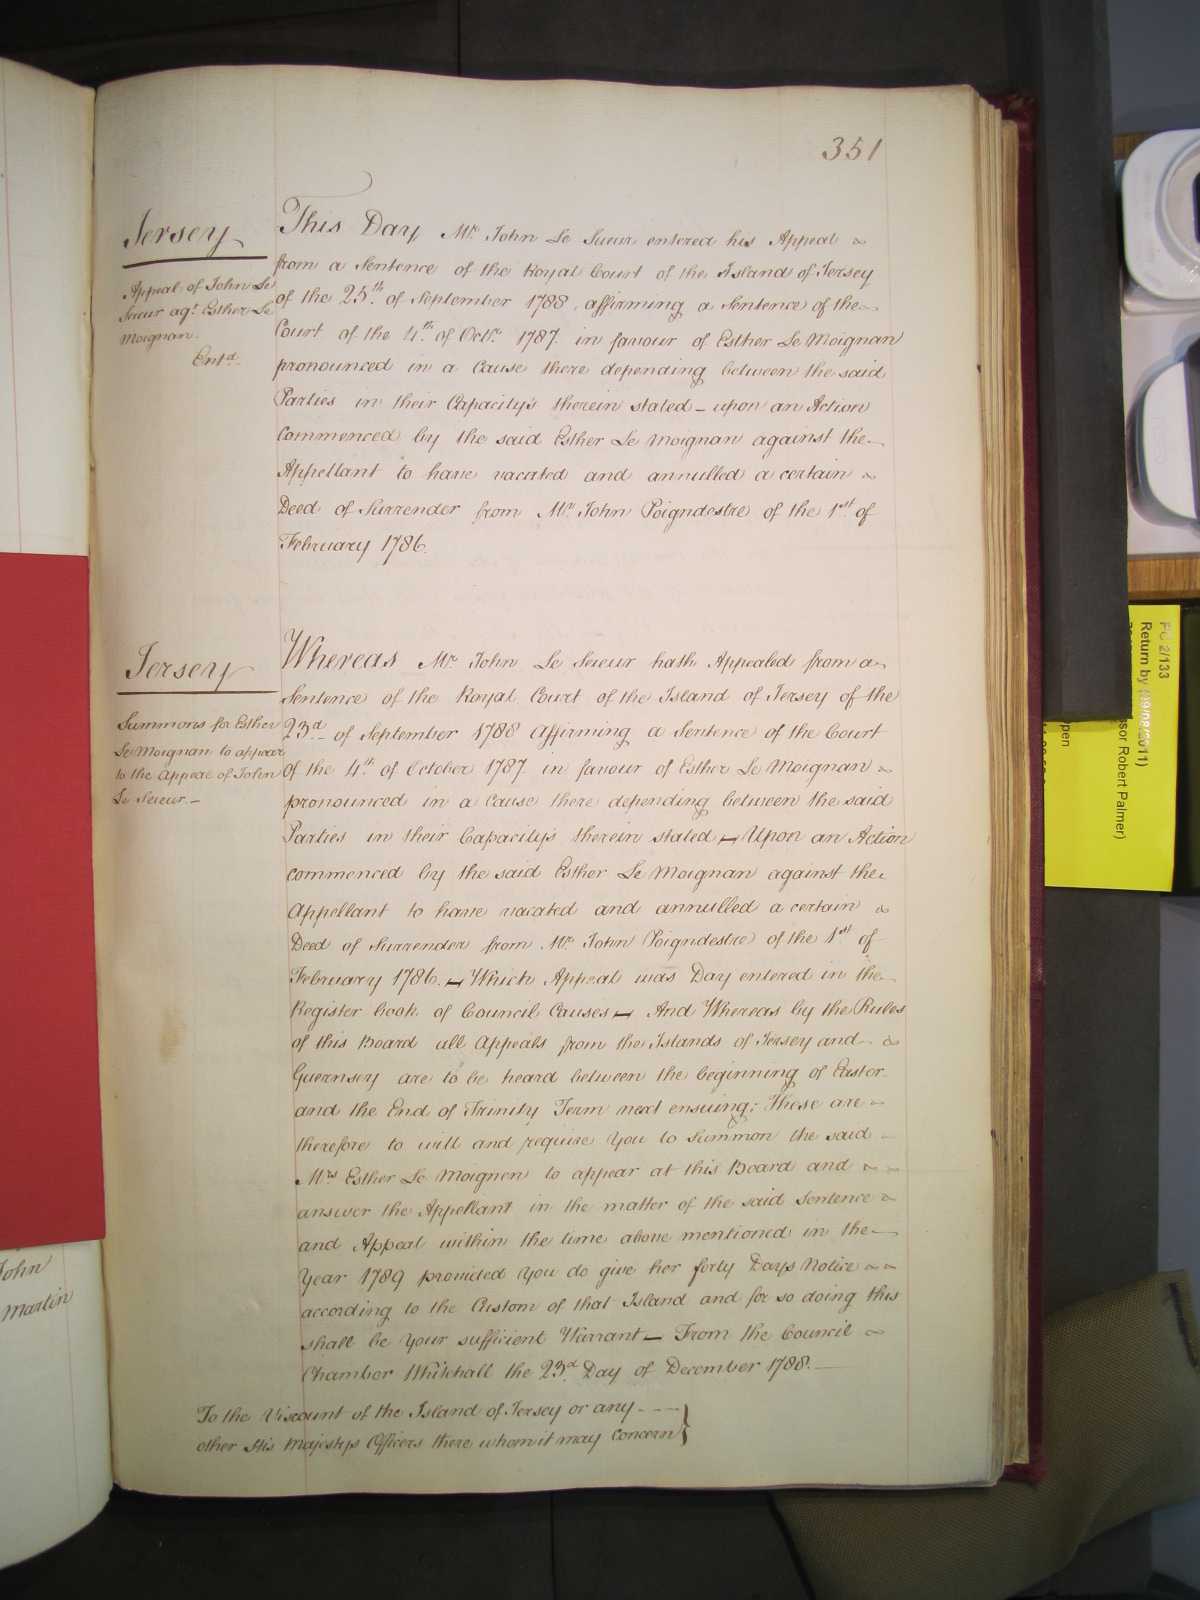 351
Jersey
Appeal of John Le
Sueur agt. Esther Le
Moignan.
Entd.
This Day Mr. John Le Sueur entered his Appeal
from a Sentence of the Royal Court of the Island of Jersey
of the 25th. of September 1788 affirming a Sentence of the
Court of the 4th. of Octr. 1787. in favour of Esther Le Moignan
pronounced in a Cause there depending between the said
Parties in their Capacity's therein stated - upon an Action
Commenced by the said Esther Le Moignan against the
Appellant to have vacated and annulled a certain
Deed of Surrender from Mr. John Poigndestre of the 1st. of
February 1786.
Jersey
Summons for Esther
Le Moignan to appear
to the Appeal of John
Le Sueur. -
Whereas Mr. John Le Sueur hath Appealed from a
Sentence of the Royal Court of the Island of Jersey of the
23d. of September 1788 Affirming a Sentence of the Court
of the 4th. of October 1787. in favour of Esther Le Moignan
pronounced in a Cause there depending between the said
Parties in their Capacity's therein stated - Upon an Action
commenced by the said Esther Le Moignan against the
Appellant to have vacated and annulled a certain
Deed of Surrender from Mr. John Poigndestre of the 1st. of
February 1786. - Which Appeal was Day entered in the
Register book of Council Causes - And Whereas by the Rules
of this Board all Appeals from the Islands of Jersey and
Guernsey are to be heard between the beginning of Easter
and the End of Trinity Term next ensuing; These are
therefore to will and require You to Summon the said
Mrs Esther Le Moignen to appear at this Board and
answer the Appellant in the matter of the said Sentence
and Appeal within the time above mentioned in the
Year 1789 provided You do give her forty Days Notice
according to the Custom of that Island and for so doing this
shall be Your sufficient Warrant - From the Council
Chamber Whitehall the 23d. Day of December 1788.
To the Viscount of the Island of Jersey or any - - -
other His Majestys Officers there whom it may Concern}
John
Martin
PC 2/133
Return by (09/08/2011)
ssor Robert Palmer)
pen